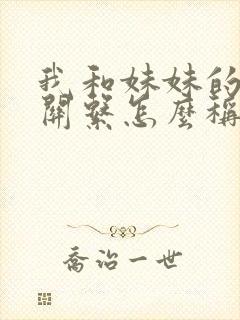 我和妹妹的
關繫怎麼稱
喬治一世